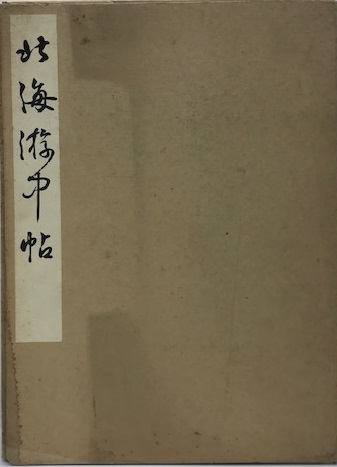 北海游中帖